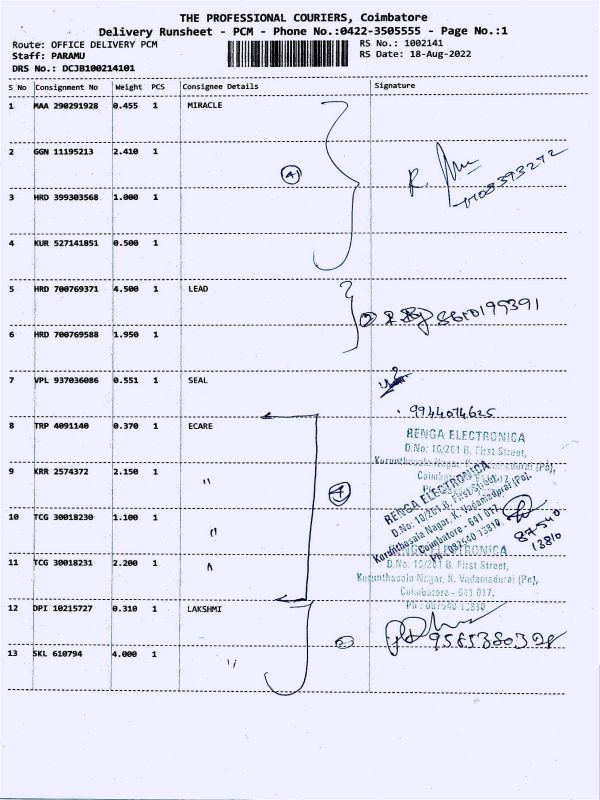 THE PROFESSIONAL COURIERS, Coimbatore
Delivery Runsheet - PCM - Phone No.:0422-3505555 - Page No.:1
Route: OFFICE DELIVERY PCM
RS No.: 1002141
Staff: PARAMU
RS Date: 18-Aug-2022
DRS No.: DCJB100214101
S No Consignment No Weight PCS Consignee Details Signature
1 MAA 290291928 0.455 1 MIRACLE
2 GGN 11195213 2.410 1
4
R.
3 HRD 399303568 1.000 1
4 KUR 527141851 0.500 1
5 HRD 700769371 4.500 1 LEAD
2
8610199391
6 HRD 700769588 1.950 1
7 VPL 937036086 0.551 1 SEAL
9944014625
8 TRP 4091140 0.370 1 ECARE
RENGA ELECTRONICA
D.No: 10/261 B, First Street,
9 KRR 2574372 2.150 1 "
4
RENGA ELECTRONICA
D.No: 10/261 B, First Street,
Kurunthasala Nagar, K. Vadamadurai (Po),
Coimbatore - 641 017.
PH : 087540 13810
87540
13810
10 TCG 30018230 1.100 1 "
11 TCG 30018231 2.200 1 "
D.No: 10/261 B, First Street,
Kurunthasala Nagar, K. Vadamadurai (Po),
Coimbatore - 641 017.
PH : 087540 13810
12 DPI 10215727 0.310 1 LAKSHMI
2
13 SKL 610794 4.000 1 "